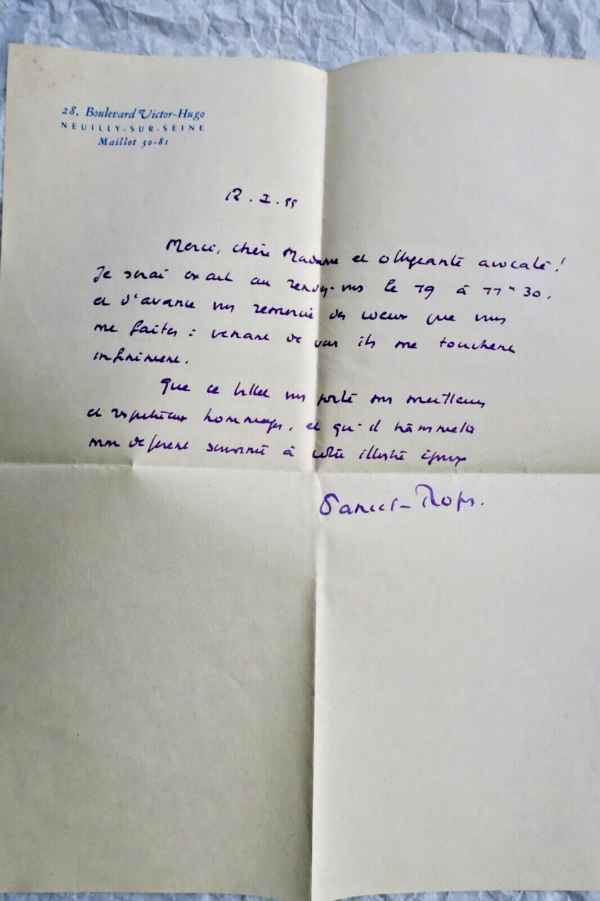 28, Boulevard Victor-Hugo
NEUILLY-SUR-SEINE
Maillot 30-81
12. I. 55
Merci, chère Madame et obligeante avocate!
Je serai exact au rendez-vous le 19 à 11h 30,
et d'avance vous remercie des vœux que vous
me faites : venant de vous ils me touchent
infiniment.
Que ce billet vous porte mes meilleurs
et respectueux hommages, et qu'il transmette
mon déférent souvenir à votre illustre époux
Daniel-Rops.